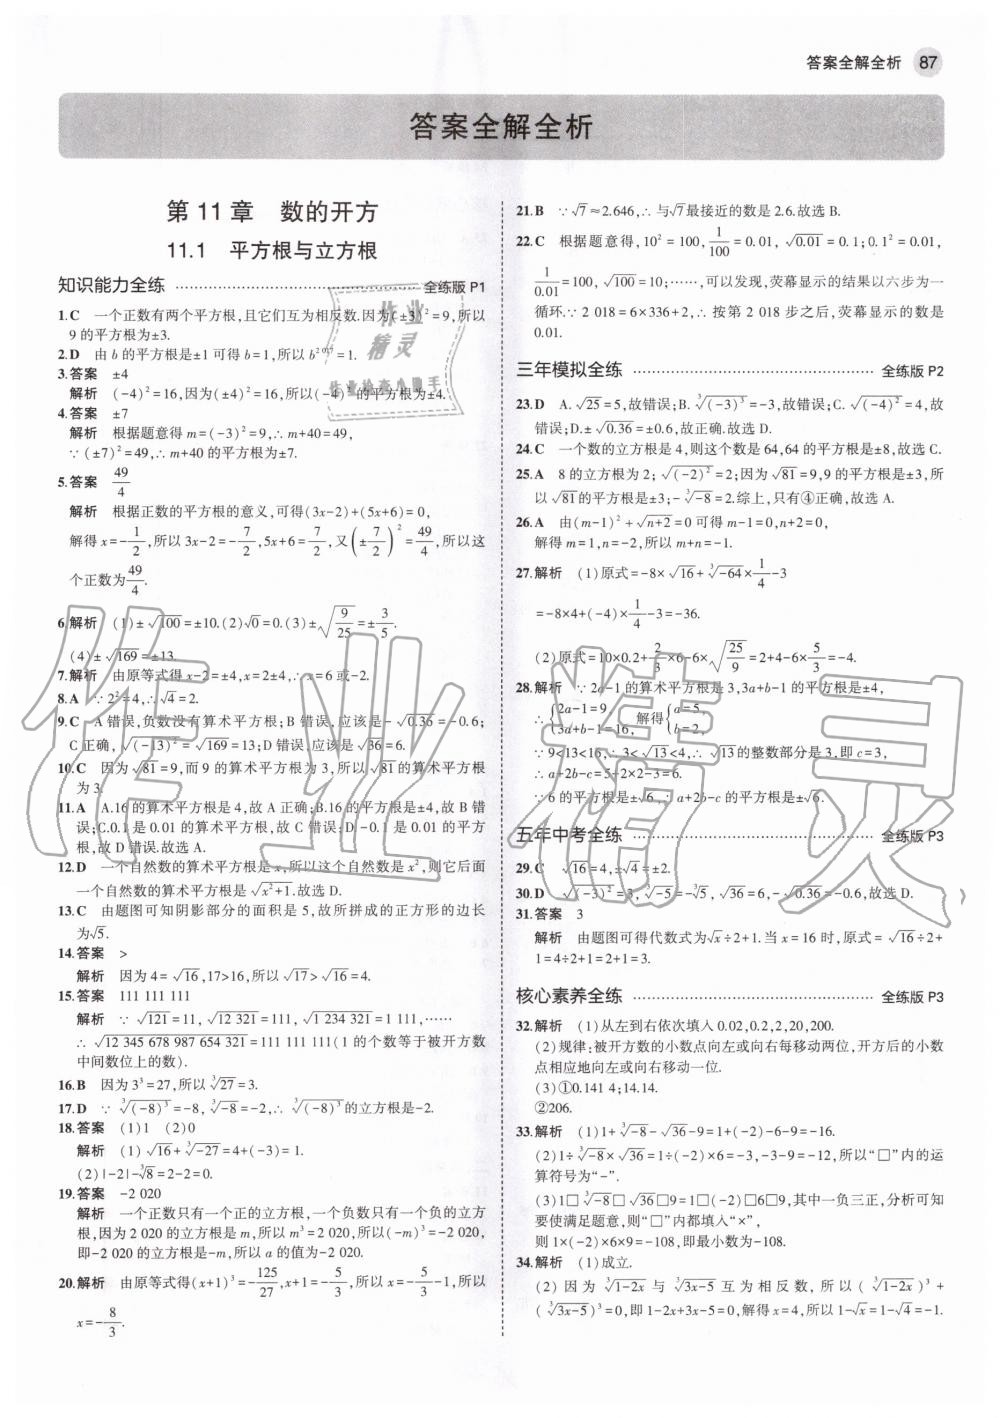 答案全解全析 87
答案全解全析
第 11 章　数的开方
11.1　平方根与立方根
知识能力全练 …… 全练版 P1
1.C　一个正数有两个平方根,且它们互为相反数.因为(±3)²=9,所以
9 的平方根为±3.
2.D　由 b 的平方根是±1 可得 b=1,所以 b²⁰¹⁷=1.
3.答案　±4
解析　(-4)²=16,因为(±4)²=16,所以(-4)²的平方根为±4.
4.答案　±7
解析　根据题意得 m=(-3)²=9,∴m+40=49,
∵(±7)²=49,∴m+40 的平方根为±7.
5.答案　49/4
解析　根据正数的平方根的意义,可得(3x-2)+(5x+6)=0,
解得 x=-1/2,所以 3x-2=-7/2,5x+6=7/2,又(±7/2)²=49/4,所以这
个正数为49/4.
6.解析　(1)±√100=±10.(2)√0=0.(3)±√(9/25)=±3/5.
(4)±√169=±13.
7.解析　由原等式得 x-2=±4,x=2±4,∴x=6 或-2.
8.A　∵2²=4,∴√4=2.
9.C　A 错误,负数没有算术平方根;B 错误,应该是-√0.36=-0.6;
C 正确,√(-13)²=√169=13;D 错误,应该是√36=6.
10.C　因为√81=9,而 9 的算术平方根为 3,所以√81的算术平方根
为 3.
11.A　A.16 的算术平方根是 4,故 A 正确;B.16 的平方根是±4,故 B 错
误;C.0.1 是 0.01 的算术平方根,故 C 错误;D.-0.1 是 0.01 的平方
根,故 D 错误.故选 A.
12.D　一个自然数的算术平方根是 x,所以这个自然数是 x²,则它后面
一个自然数的算术平方根是√(x²+1).故选 D.
13.C　由题图可知阴影部分的面积是 5,故所拼成的正方形的边长
为√5.
14.答案　>
解析　因为 4=√16,17>16,所以√17>√16=4.
15.答案　111 111 111
解析　∵√121=11,√12 321=111,√1 234 321=1 111,……
∴√12 345 678 987 654 321=111 111 111(1 的个数等于被开方数
中间数位上的数).
16.B　因为 3³=27,所以∛27=3.
17.D　∵∛(-8)³=-8,∛-8=-2,∴∛(-8)³的立方根是-2.
18.答案　(1)1　(2)0
解析　(1)√16+∛-27=4+(-3)=1.
(2)|-2|-∛8=2-2=0.
19.答案　-2 020
解析　一个正数只有一个正的立方根,一个负数只有一个负的立方
根,因为 2 020 的立方根是 m,所以 m³=2 020,所以(-m)³=-2 020,
即-2 020 的立方根是-m,所以 a 的值为-2 020.
20.解析　由原等式得(x+1)³=-125/27,x+1=-5/3,所以 x=-5/3-1,所以
x=-8/3.
21.B　∵√7≈2.646,∴与√7最接近的数是 2.6.故选 B.
22.C　根据题意得,10²=100,1/100=0.01,√0.01=0.1;0.1²=0.01,
1/0.01=100,√100=10;……,可以发现,荧幕显示的结果以六步为一
循环.∵2 018=6×336+2,∴按第 2 018 步之后,荧幕显示的数是
0.01.
三年模拟全练 …… 全练版 P2
23.D　A.√25=5,故错误;B.∛(-3)³=-3,故错误;C.√(-4)²=4,故
错误;D.±√0.36=±0.6,故正确.故选 D.
24.C　一个数的立方根是 4,则这个数是 64,64 的平方根是±8,故选 C.
25.A　8 的立方根为 2;√(-2)²=2;因为√81=9,9 的平方根是±3,所
以√81的平方根是±3;-∛-8=2.综上,只有④正确,故选 A.
26.A　由(m-1)²+√(n+2)=0 可得 m-1=0,n+2=0,
解得 m=1,n=-2,所以 m+n=-1.
27.解析　(1)原式=-8×√16+∛-64×1/4-3
=-8×4+(-4)×1/4-3=-36.
(2)原式=10×0.2+2/3×6-6×√(25/9)=2+4-6×5/3=-4.
28.解析　∵2a-1 的算术平方根是 3,3a+b-1 的平方根是±4,
∴{2a-1=9, 3a+b-1=16, 解得{a=5, b=2,
∵9<13<16,∴3<√13<4,∴√13的整数部分是 3,即 c=3,
∴a+2b-c=5+2×2-3=6.
∵6 的平方根是±√6,∴a+2b-c 的平方根是±√6.
五年中考全练 …… 全练版 P3
29.C　√16=4,±√4=±2.
30.D　√(-3)²=3,∛-5=-∛5,√36=6,-√0.36=-0.6,故选 D.
31.答案　3
解析　由题图可得代数式为√x÷2+1.当 x=16 时,原式=√16÷2+
1=4÷2+1=2+1=3.
核心素养全练 …… 全练版 P3
32.解析　(1)从左到右依次填入 0.02,0.2,2,20,200.
(2)规律:被开方数的小数点向左或向右每移动两位,开方后的小数
点相应地向左或向右移动一位.
(3)①0.141 4;14.14.
②206.
33.解析　(1)1+∛-8-√36-9=1+(-2)-6-9=-16.
(2)1÷∛-8×√36=1÷(-2)×6=-3,-3-9=-12,所以“□”内的运
算符号为“-”.
(3)1□∛-8□√36□9=1□(-2)□6□9,其中一负三正,分析可知
要使满足题意,则“□”内都填入“×”,
则 1×(-2)×6×9=-108,即最小数为-108.
34.解析　(1)成立.
(2)因为∛(1-2x)与∛(3x-5)互为相反数,所以(∛(1-2x))³+
(∛(3x-5))³=0,即 1-2x+3x-5=0,解得 x=4,所以 1-√x=1-√4=-1.
作业精灵
作业检查小助手